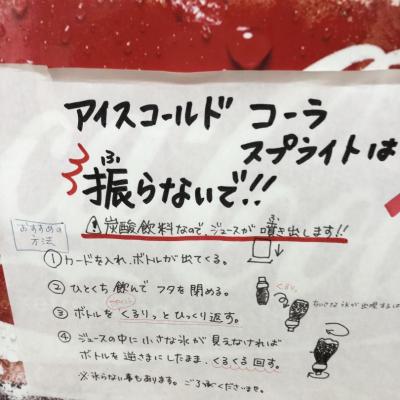 アイスコールド コーラ
スプライトは
振らないで!!
ふ
⚠炭酸飲料なので、ジュースが噴き出します!!
ふ
おすすめの
方法
①カードを入れ、ボトルが出てくる。
②ひとくち飲んで フタを閉める。
③ボトルをくるりっとひっくり返す。
くるっ
④ジュースの中に小さな氷が見えなければ
ボトルを逆さまにしたまま、くるくる回す。
※氷らない事もあります。ご了承くださいませ。